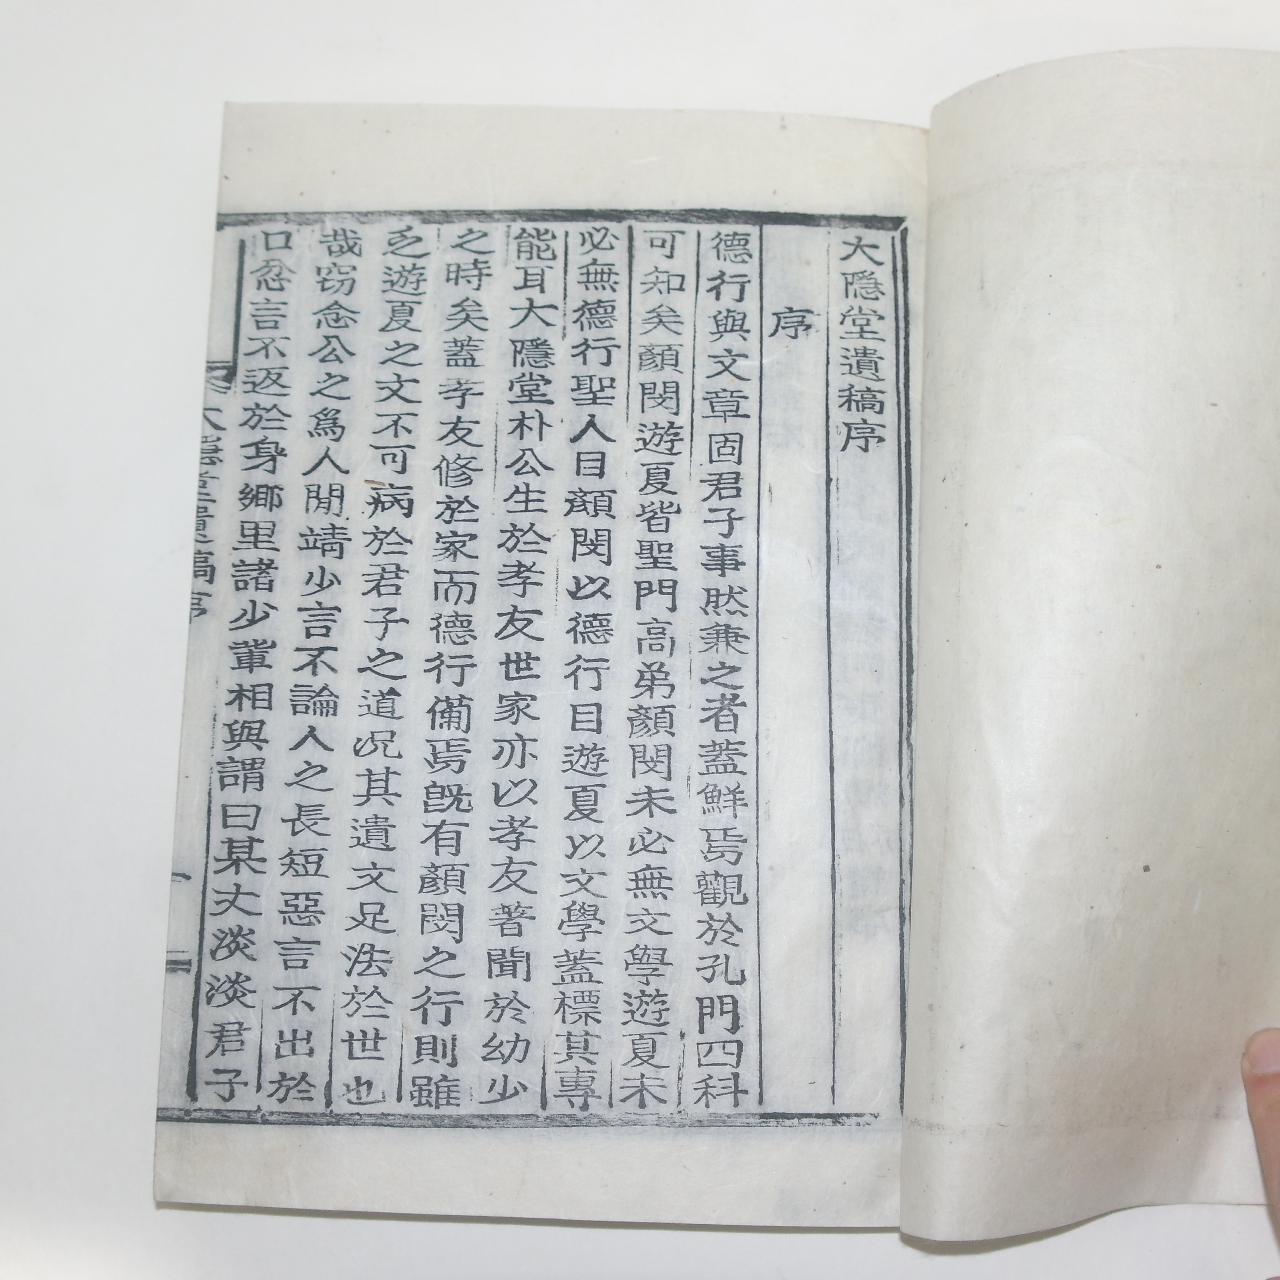 大隱堂遺稿序
序
德行與文章固君子事然兼之者蓋鮮焉觀於孔門四科
可知矣顏閔遊夏皆聖門高弟顏閔未必無文學遊夏未
必無德行聖人目顏閔以德行目遊夏以文學蓋標其專
能耳大隱堂朴公生於孝友世家亦以孝友著聞於幼少
之時矣蓋孝友修於家而德行備焉旣有顏閔之行則雖
乏遊夏之文不可病於君子之道况其遺文足法於世也
哉窃念公之爲人閒靖少言不論人之長短惡言不出於
口忿言不返於身鄉里諸少輩相與謂曰某丈淡淡君子
大隱堂遺稿序
一